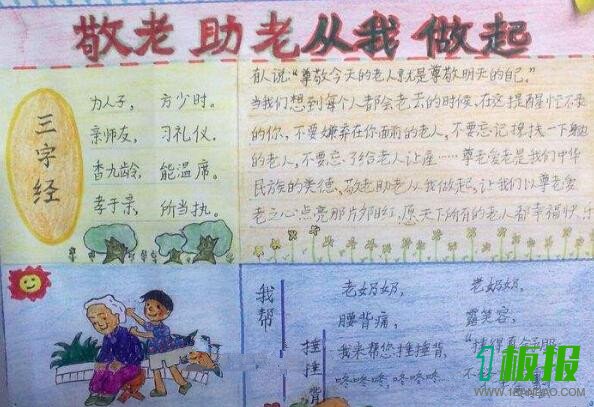 敬老助老从我做起
三字经
为人子，方少时。
亲师友，习礼仪。
香九龄，能温席。
孝于亲，所当执。
有人说："尊敬今天的老人就是尊敬明天的自己"
当我们想到每个人都会老去的时候，在这提醒忙碌
的你，不要嫌弃在你面前的老人，不要忘记搀扶一下身边
的老人，不要忘了给老人让座……尊老爱老是我们中华
民族的美德。敬老助老从我做起，让我们以尊老爱
老之心点亮那片夕阳红，愿天下所有的老人都幸福快乐
我帮
捶捶背
老奶奶，
腰背痛，
我来帮您捶捶背，
咚咚咚，咚咚咚
老奶奶，
露笑容，
"捶得真舒服
不
1板报
1BANBAO.COM